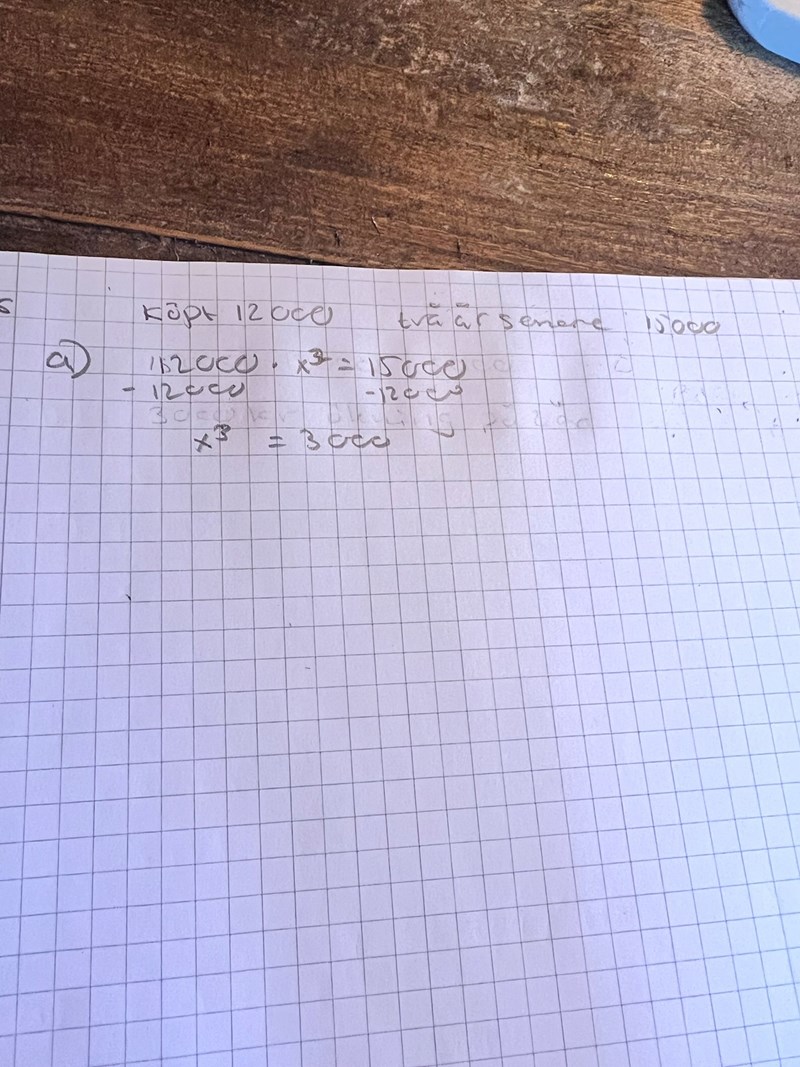 köpt 12000 två år senere 15000
a) 12000 · x³ = 15000
- 12000 -12000
x³ = 3000